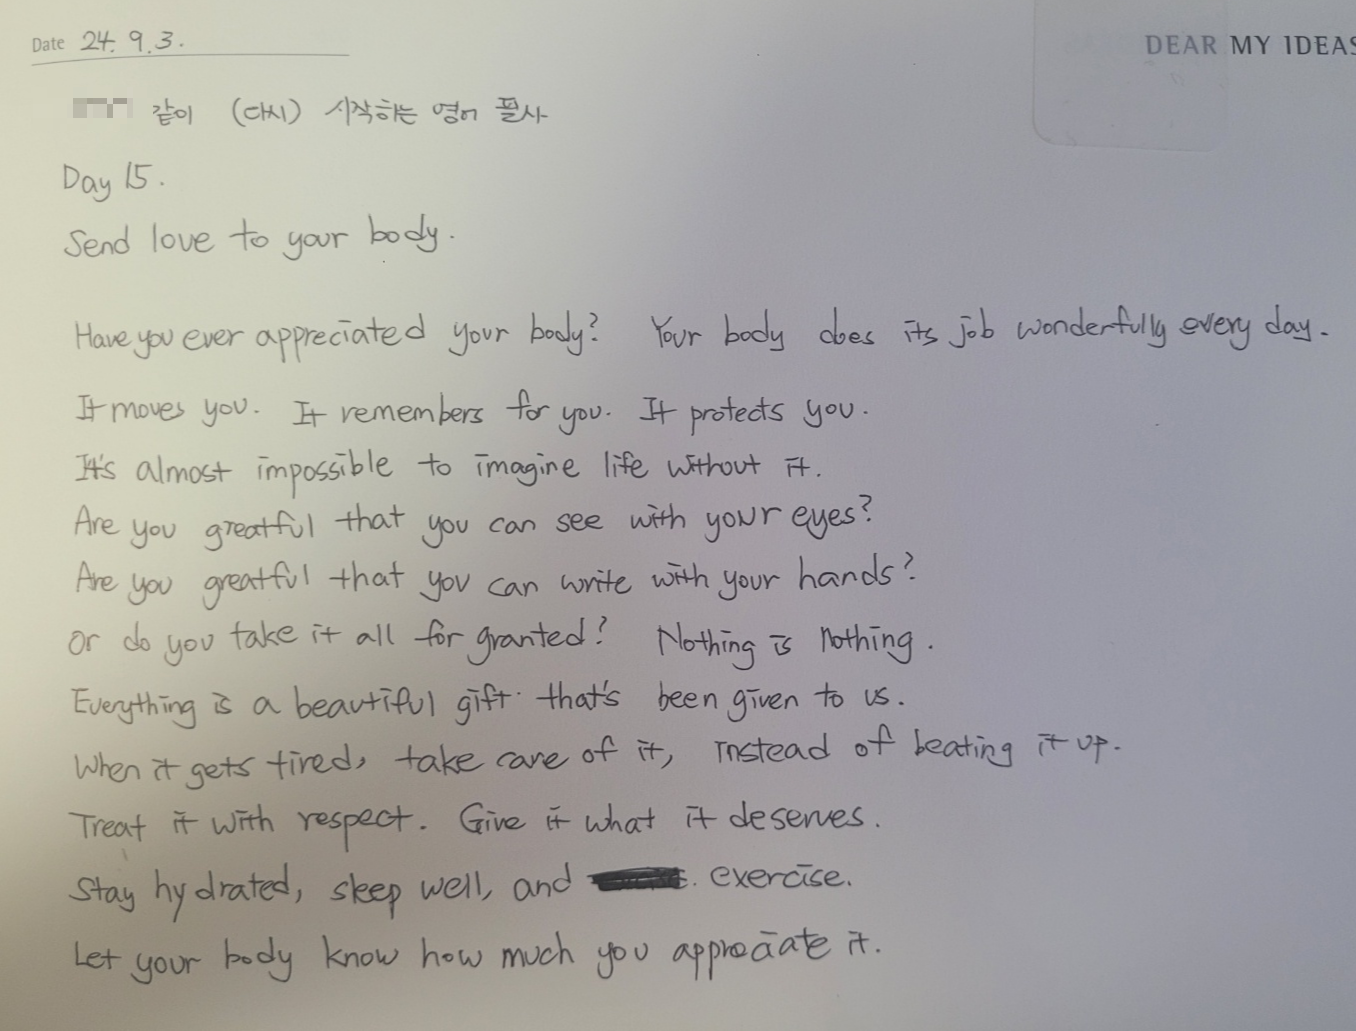 Date 24. 9. 3.
DEAR MY IDEAS
같이 (다시) 시작하는 영어 필사
Day 15.
Send love to your body.
Have you ever appreciated your body? Your body does its job wonderfully every day.
It moves you. It remembers for you. It protects you.
It's almost impossible to imagine life without it.
Are you greatful that you can see with your eyes?
Are you greatful that you can write with your hands?
Or do you take it all for granted? Nothing is nothing.
Everything is a beautiful gift that's been given to us.
When it gets tired, take care of it, instead of beating it up.
Treat it with respect. Give it what it deserves.
Stay hydrated, sleep well, and exercise.
Let your body know how much you appreciate it.